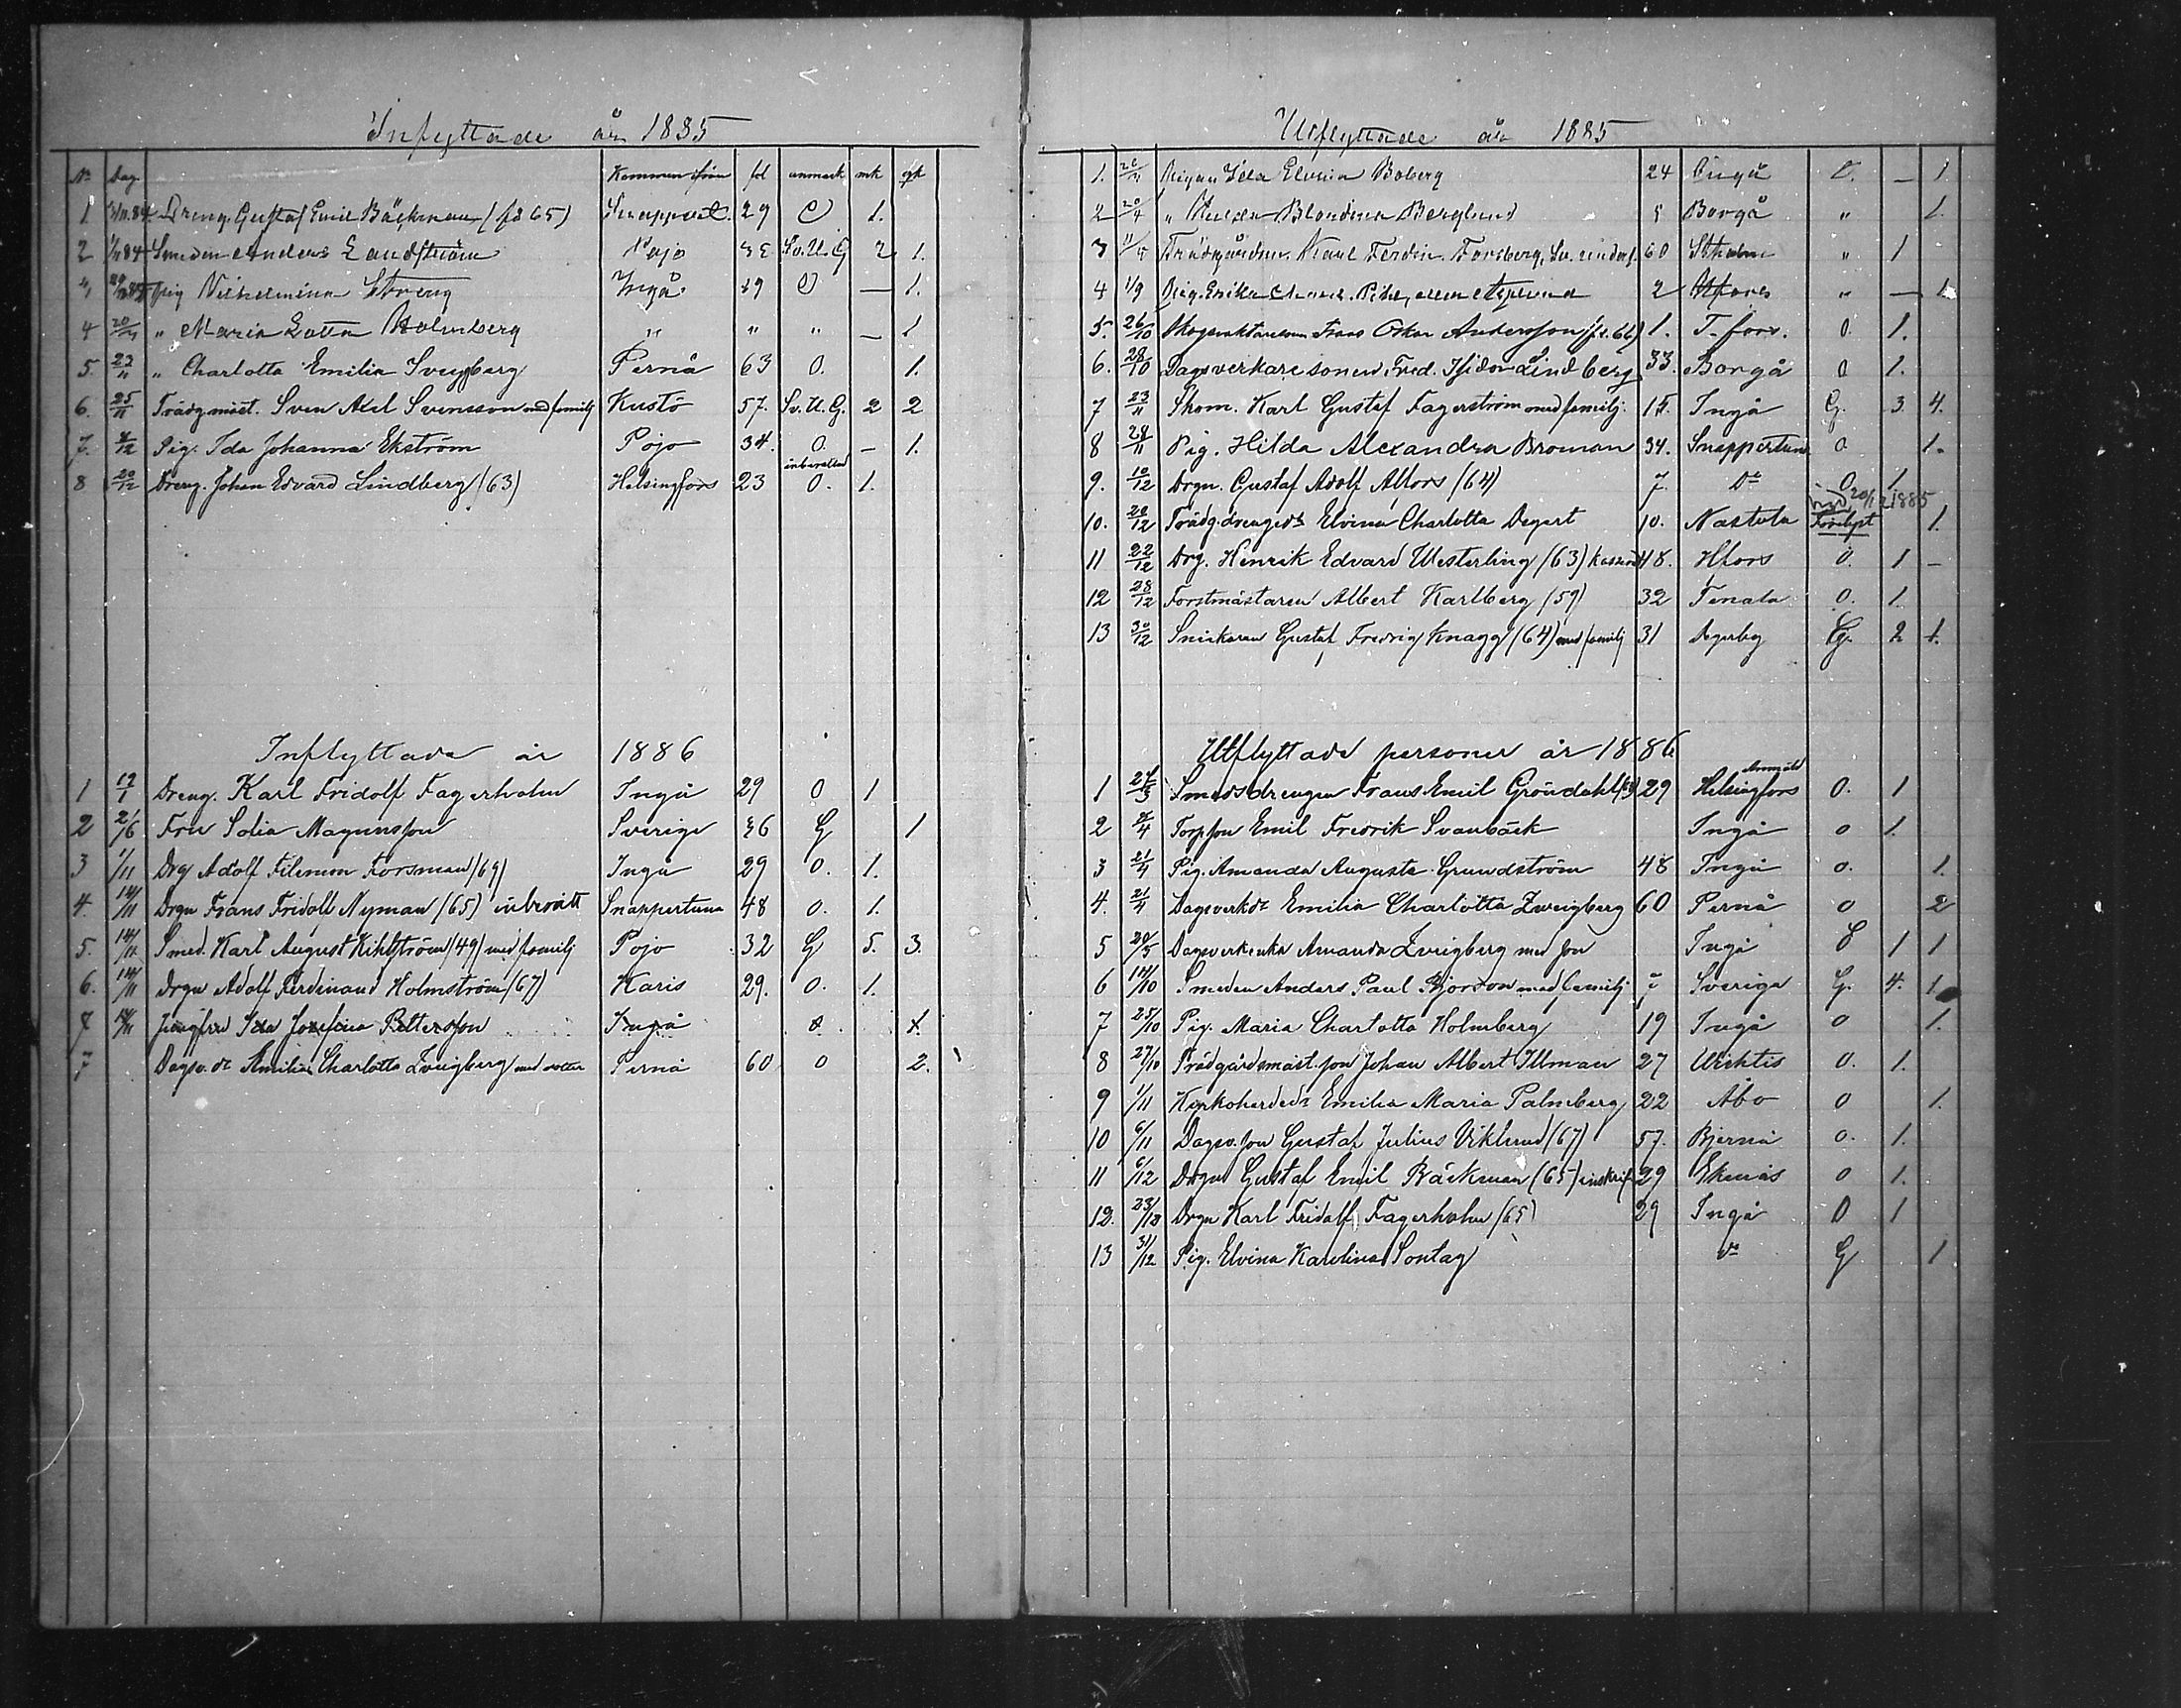 Inflyttade år 1885
No Dag Kommen ifrån fol anmärk mk qk
1 3/11.84 Dreng. Gustaf Emil Bäckman (fd 65) Snappert. 29 O 1.
2 1/11 84 Smeden Anders Landström Pojo 32 Sv. U. G 2 1.
pig Vilhelmina Streng Ingå 19 O — 1.
4 20/11 " Maria Lotta Holmberg " " " — 1
5. 23/11 " Charlotta Emilia Sveigberg Pernå 63 O. 1.
6. 25/11 Trädg.mäst. Sven Axel Svensson med familj Kustö 57. Sv. U. G. 2 2
7. 4/12 Pig. Ida Johanna Ekström Pojo 34. O. — 1.
8 20/12 Dreng. Johan Edvard Lindberg (63) Helsingfors 23 O. 1.
Inflyttade år 1886
1 12/1 Dreng. Karl Fridolf Fagerholm Ingå 29 O 1
2 2/6 Fru Sofia Magnusson Sverige 36 G 1
3 1/11 Drg Adolf Filemon Forsman (69) Ingå 29 O. 1.
4. 14/11 Drgn Frans Fridolf Nyman (65) Snappertuna 48 O. 1.
5. 14/11 Smed. Karl August Kihlström (49) med familj Pojo 32 G 5. 3.
6. 14/11 Drgn Adolf Ferdinand Holmström (67) Karis 29. O. 1.
7 14/11 Jungfru Ida Josefina Pettersson Ingå O 1.
7 Dagsv. dr Emilia Charlotta Zveigberg med dotter Pernå 60 O 2.
Utflyttade år 1885
1. Pigan Ida Elvina Boberg 24 Ingå O. — 1.
2 20/4 " Blondina Berglund 5 Borgå " 1.
3 Karl Ferdin. Forsberg, Sv. unders. 60 Stholm " 1
4 1/9 Pig. Erika 2 Hfors " — 1.
5. 26/10 Skogvaktareson Frans Oskar Andersson (fd. 66) 1. T-fors. O. 1.
6. 28/10 Dagsverkaresonen Fred. Isidor Lindberg 33. Borgå O 1.
7 23/11 Skom. Karl Gustaf Fagerström med familj. 15. Ingå G. 3. 4.
8 28/11 Pig. Hilda Alexandra Broman 34. Snappertuna O 1.
9. 10/12 Drgn. Gustaf Adolf Alfors (64) 7. Do O 1
20/12 1885
10. 20/12 Trädg.drengedr Elvina Charlotta Degert 10. Nastola 1.
11 22/12 Drg. Henrik Edvard Westerling (63) 48. Hfors O. 1 —
12 28/12 Forstmästaren Albert Karlberg (59) 32 Tenala O. 1.
13 30/12 Snickaren Gustaf Fredrig Knagg (64) med familj 31 Degerby G. 2 1.
Utflyttade personer år 1886
1 Smedsdrengen Frans Emil Gröndahl 29 Helsingfors O. 1
2 Torpson Emil Fredrik Svanbäck Ingå O 1.
3 21/4 Pig. Amanda Augusta Grundström 48 Ingå O. 1.
4. 21/4 Dagsverkdr Emilia Charlotta Zweigberg 60 Pernå O 2
5 Dagsverkenka Amanda Zveigberg med son Ingå O 1 1
6 14/10 Smeden Anders Paul med familj. Sverige G. 4. 1
7 25/10 Pig. Maria Charlotta Holmberg 19 Ingå O 1.
8 27/10 Trädgårdsmäst.son Johan Albert Illman 27 Wichtis O. 1.
9 1/11 Kyrkoherdedr Emilia Maria Palmberg 22 Åbo O 1.
10 6/11 Dagsv. son Gustaf Julius Viklund (67) 57. Bjernå O. 1.
11 6/12 Drgn Gustaf Emil Bäckman (65) inskrif. 29 Ekenäs O 1.
12. 23/12 Drgn Karl Fridolf Fagerholm (65) 29 Ingå O 1
13 31/12 Pig. Elvina Karolina Sontag do G 1